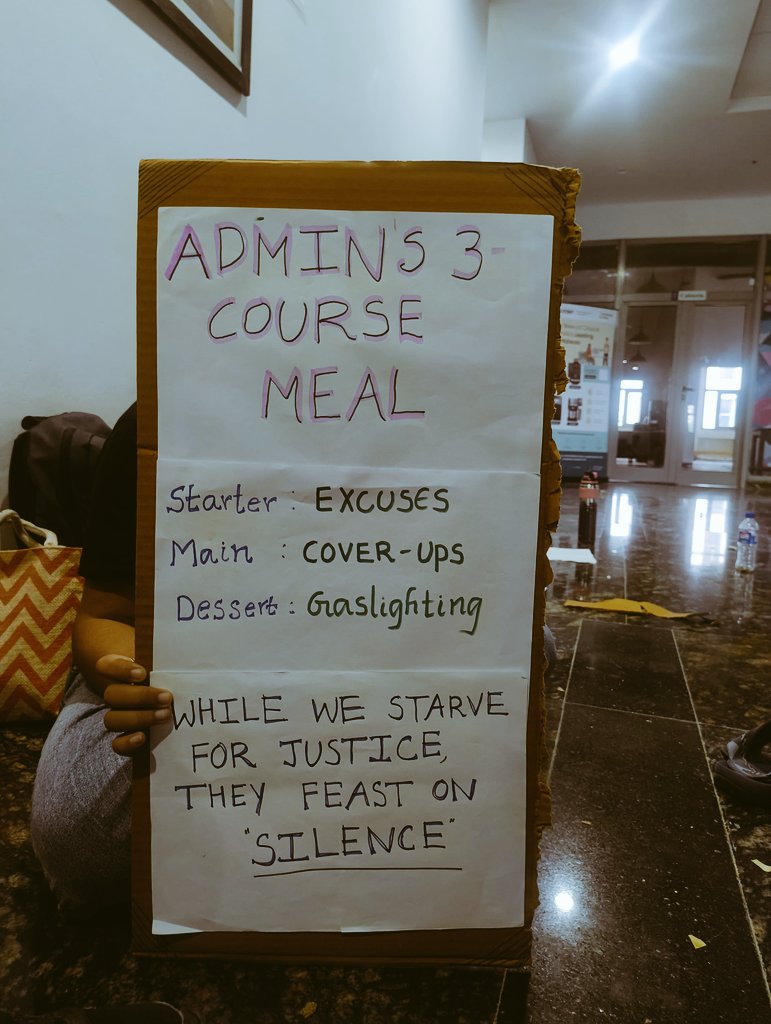 ADMIN'S 3-
COURSE
MEAL
Starter : EXCUSES
Main : COVER-UPS
Dessert : Gaslighting
WHILE WE STARVE
FOR JUSTICE,
THEY FEAST ON
"SILENCE"